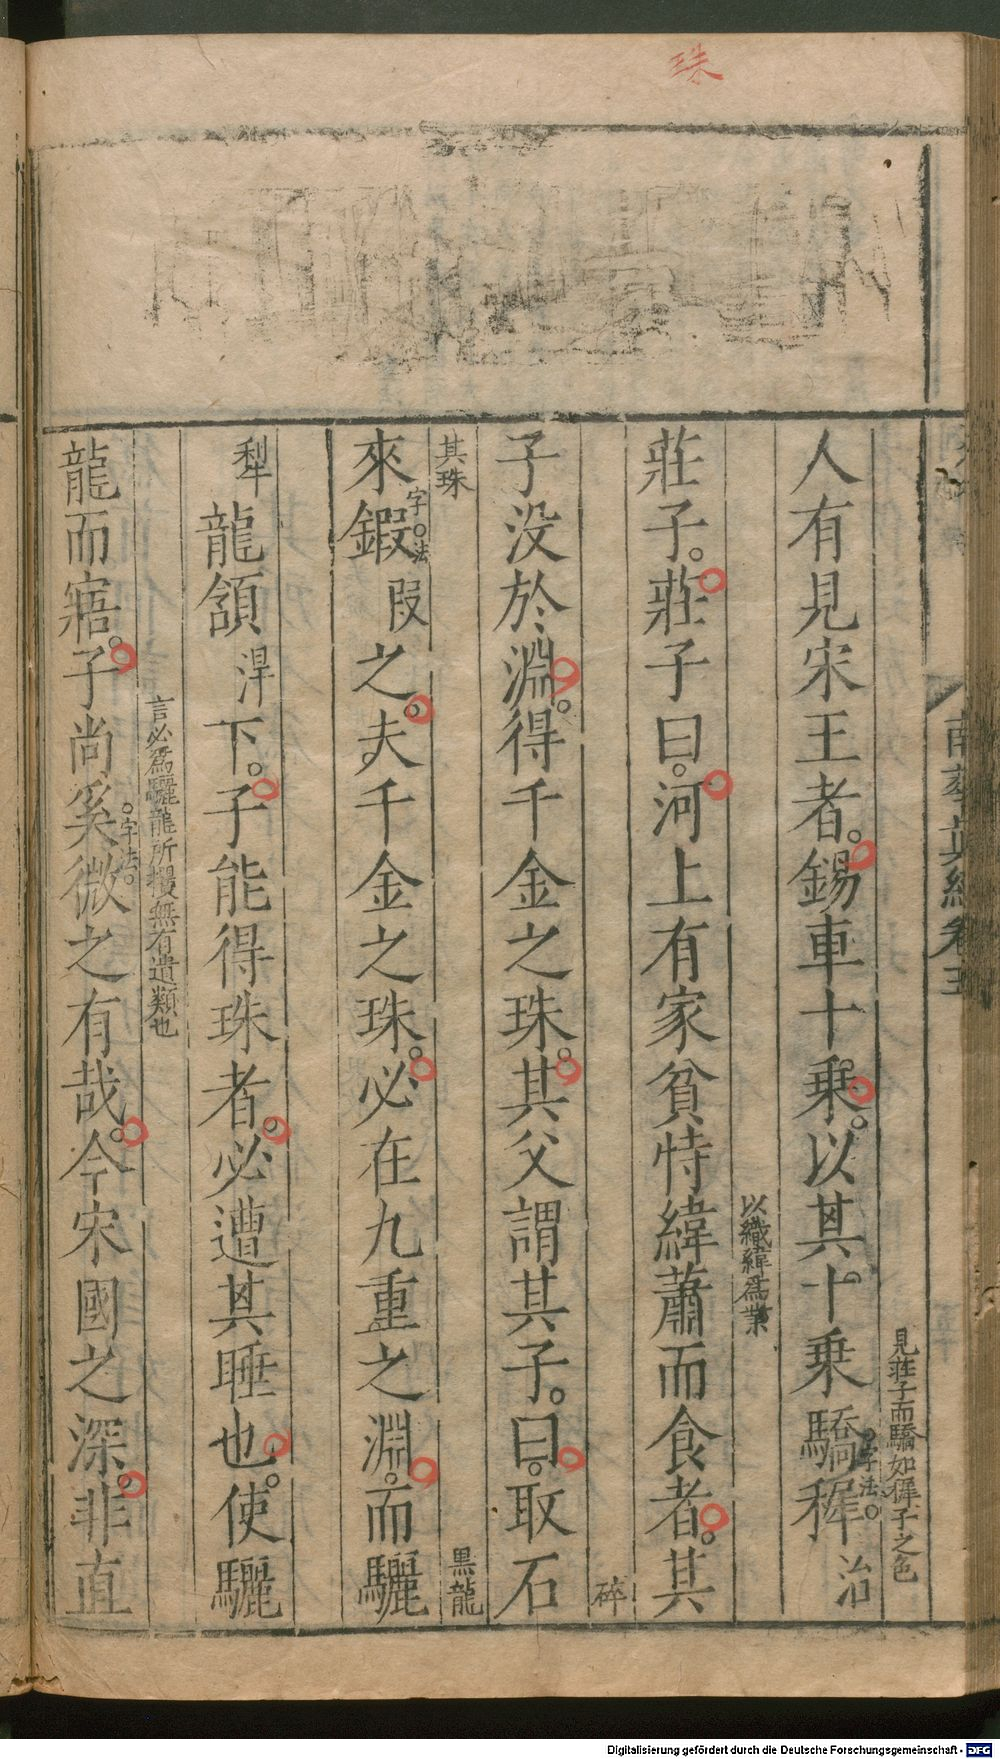 珠
南華真經卷五
見莊子而驕如穉子之色
人有見宋王者。錫車十乗。以其十乗驕穉治
字法。
以織緯爲業
莊子。莊子曰。河上有家貧恃緯蕭而食者。其
碎
子没於淵。得千金之珠。其父謂其子。曰。取石
其珠
黒龍
來鍜叚之。夫千金之珠。必在九重之淵。而驪
字。法
犁龍頷淠下。子能得珠者。必遭其睡也。使驪
言必爲驪龍所攫無有遺類也
龍而寤。子尚奚微之有哉。今宋國之深。非直
。字法。
Digitalisierung gefördert durch die Deutsche Forschungsgemeinschaft - DFG